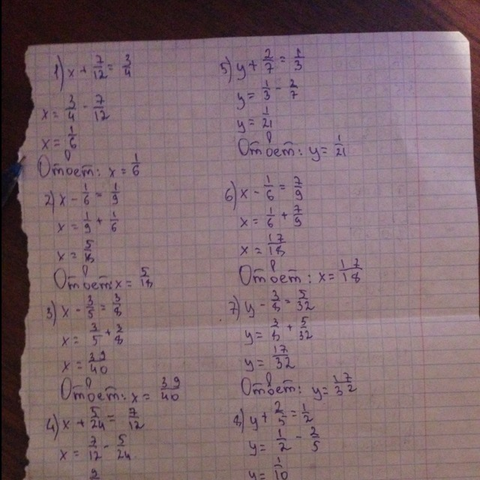 1) x + 7/12 = 3/4
x = 3/4 - 7/12
x = 1/6
Ответ: x = 1/6
2) x - 1/6 = 1/9
x = 1/9 + 1/6
x = 5/18
Ответ: x = 5/18
3) x - 3/5 = 3/8
x = 3/5 + 3/8
x = 39/40
Ответ: x = 39/40
4) x + 5/24 = 7/12
x = 7/12 - 5/24
5) y + 2/7 = 1/3
y = 1/3 - 2/7
y = 1/21
Ответ: y = 1/21
6) x - 1/6 = 7/9
x = 1/6 + 7/9
x = 17/18
Ответ: x = 17/18
7) y - 3/8 = 5/32
y = 3/8 + 5/32
y = 17/32
Ответ: y = 17/32
8) y + 2/5 = 1/2
y = 1/2 - 2/5
y = 1/10